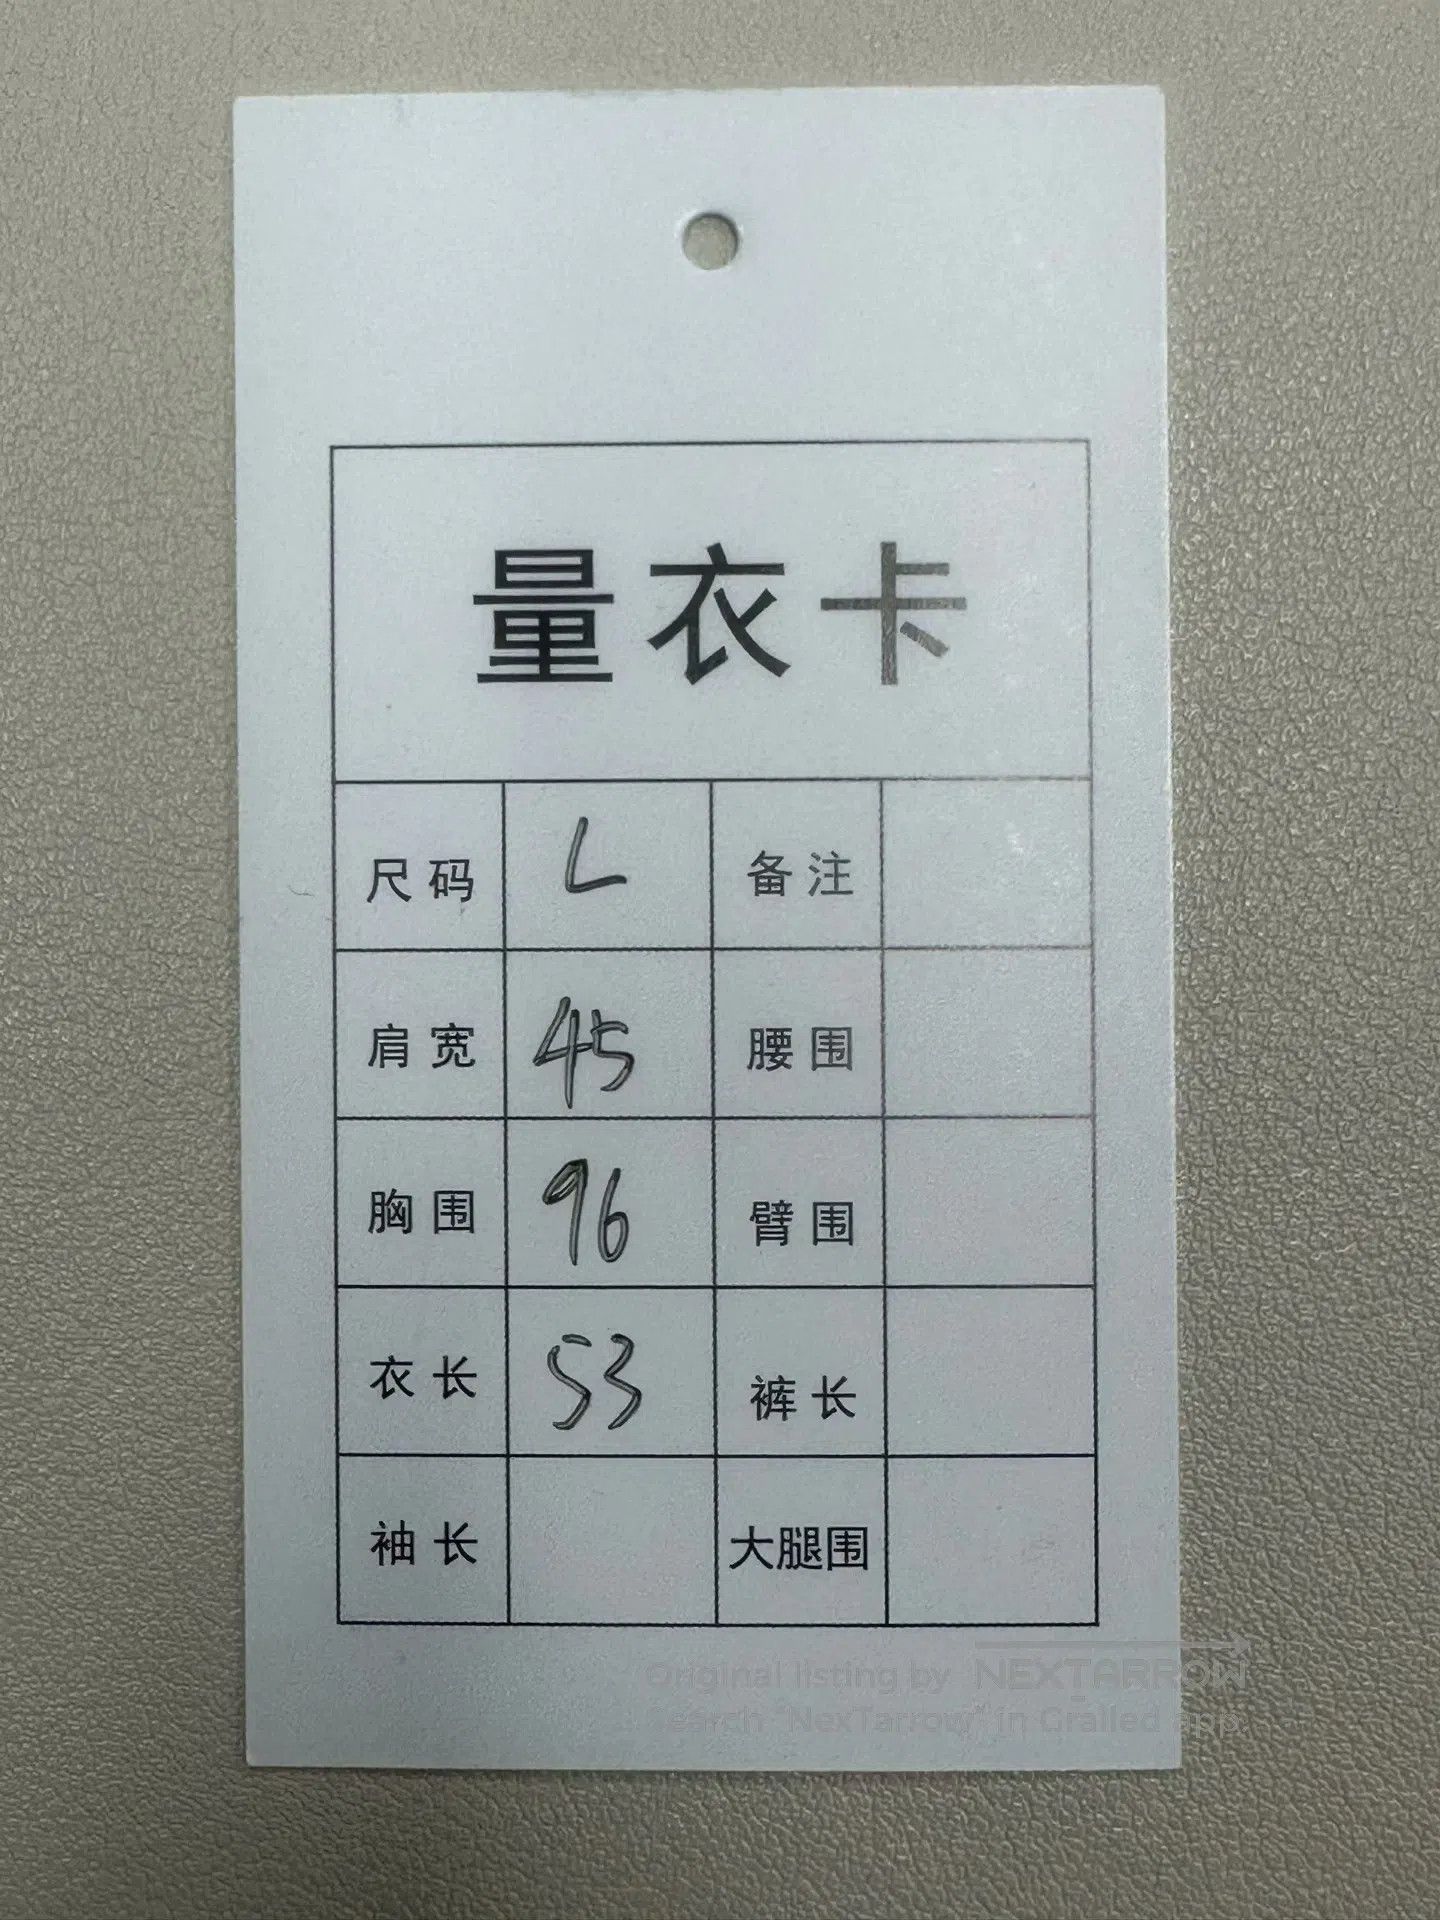 量衣卡
尺码 L 备注
肩宽 45 腰围
胸围 96 臂围
衣长 53 裤长
袖长 大腿围
Original listing by NEXTARROW
Search "NexTarrow" in Grailed app.